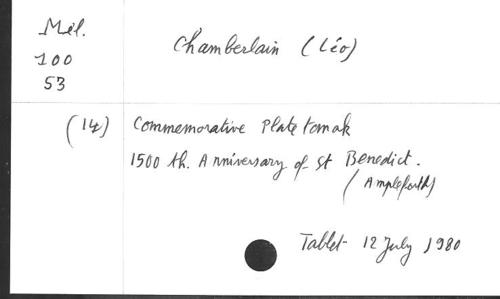 Mél.
100
53
Chamberlain (Léo)
(14) Commemorative Plate to mark
1500 th. Anniversary of St Benedict.
(Ampleforth)
Tablet 12 July 1980